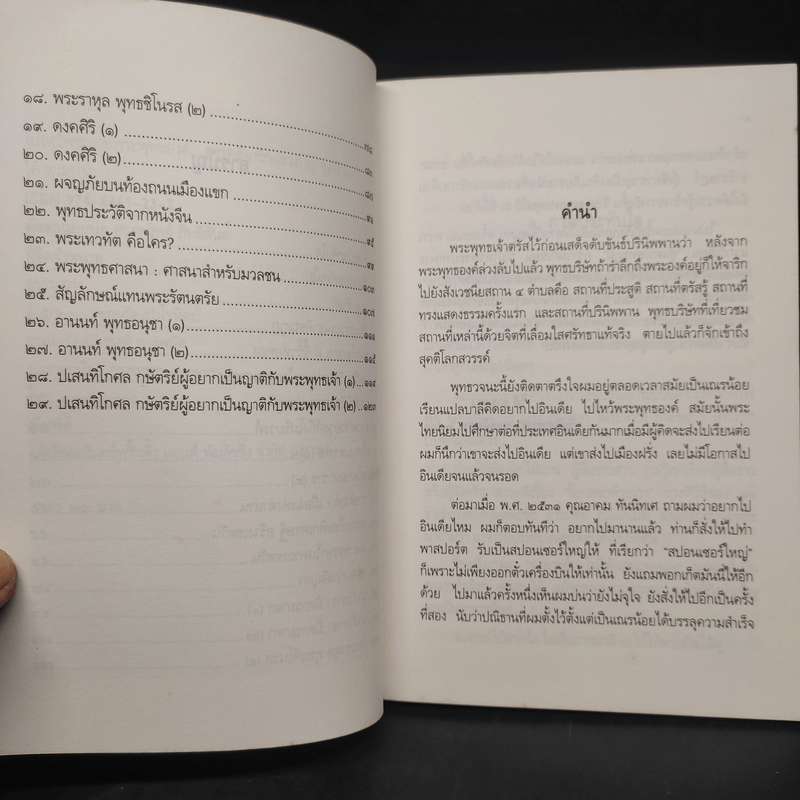 ๑๘. พระราหุล พุทธชิโนรส (๒)
๑๙. ดงคศิริ (๑) ๗๘
๒๐. ดงคศิริ (๒)
๒๑. ผจญภัยบนท้องถนนเมืองแขก
๒๒. พุทธประวัติจากหนังจีน
๒๓. พระเทวทัต คือใคร? ๙๕
๒๔. พระพุทธศาสนา : ศาสนาสำหรับมวลชน
๒๕. สัญลักษณ์แทนพระรัตนตรัย ๑๐๓
๒๖. อานนท์ พุทธอนุชา (๑) ๑๐๗
๒๗. อานนท์ พุทธอนุชา (๒) ๑๑๑
๒๘. ปเสนทิโกศล กษัตริย์ผู้อยากเป็นญาติกับพระพุทธเจ้า (๑) ๑๑๕
๒๙. ปเสนทิโกศล กษัตริย์ผู้อยากเป็นญาติกับพระพุทธเจ้า (๒)
คำนำ
พระพุทธเจ้าตรัสไว้ก่อนเสด็จดับขันธ์ปรินิพพานว่า หลังจาก
พระพุทธองค์ล่วงลับไปแล้ว พุทธบริษัทถ้ารำลึกถึงพระองค์อยู่ก็ให้จาริก
ไปยังสังเวชนียสถาน ๔ ตำบลคือ สถานที่ประสูติ สถานที่ตรัสรู้ สถานที่
ทรงแสดงธรรมครั้งแรก และสถานที่ปรินิพพาน พุทธบริษัทที่เที่ยวชม
สถานที่เหล่านี้ด้วยจิตที่เลื่อมใสศรัทธาแท้จริง ตายไปแล้วก็จักเข้าถึง
สุคติโลกสวรรค์
พุทธวจนะนี้ยังติดตาตรึงใจผมอยู่ตลอดเวลาสมัยเป็นเณรน้อย
เรียนแปลบาลีคิดอยากไปอินเดีย ไปไหว้พระพุทธองค์ สมัยนั้นพระ
ไทยนิยมไปศึกษาต่อที่ประเทศอินเดียกันมากเมื่อมีผู้คิดจะส่งไปเรียนต่อ
ผมก็นึกว่าเขาจะส่งไปอินเดีย แต่เขาส่งไปเมืองฝรั่ง เลยไม่มีโอกาสไป
อินเดียจนแล้วจนรอด
ต่อมาเมื่อ พ.ศ. ๒๕๓๑ คุณอาคม ทันนิทเศ ถามผมว่าอยากไป
อินเดียไหม ผมก็ตอบทันทีว่า อยากไปมานานแล้ว ท่านก็สั่งให้ไปทำ
พาสปอร์ต รับเป็นสปอนเซอร์ใหญ่ให้ ที่เรียกว่า “สปอนเซอร์ใหญ่”
ก็เพราะไม่เพียงออกตั๋วเครื่องบินให้เท่านั้น ยังแถมพอกเก็ตมันนี่ให้อีก
ด้วย ไปมาแล้วครั้งหนึ่งเห็นผมบ่นว่ายังไม่จุใจ ยังสั่งให้ไปอีกเป็นครั้ง
ที่สอง นับว่าปณิธานที่ผมตั้งไว้ตั้งแต่เป็นเณรน้อยได้บรรลุความสำเร็จ